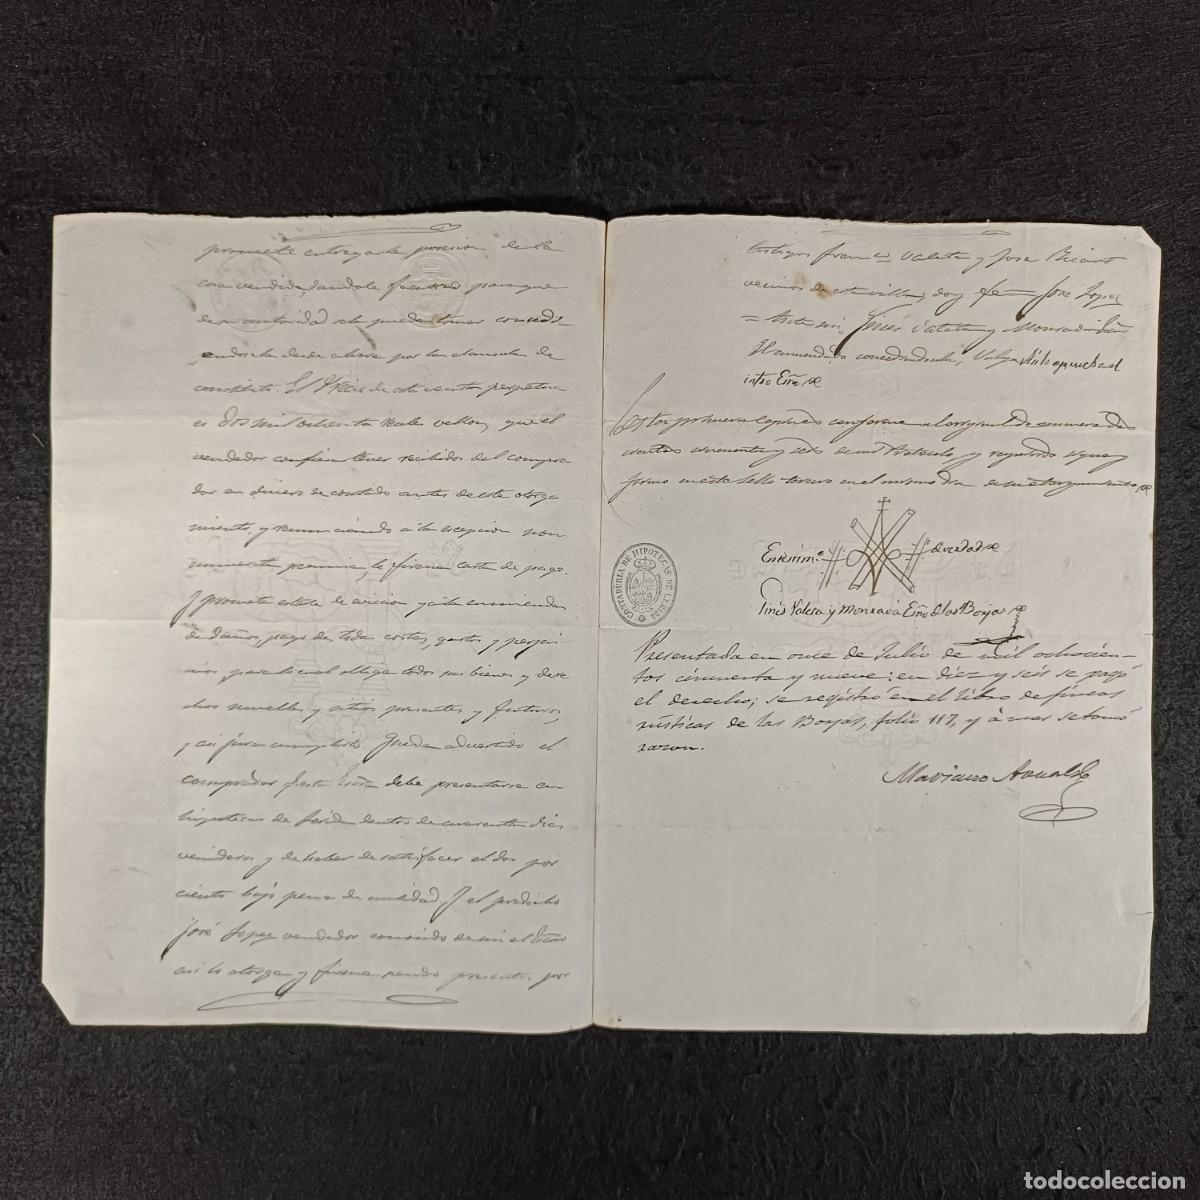 promete entregarle posesion de la
cosa vendida, dandole facultad para que
de su autoridad se la pueda tomar constitu
yendosela desde ahora por la clausula de
constituto. El precio de esta venta perpetua
es Dos mil ochenta reales vellon, que el
vendedor confiesa tener recibidos del compra
dor en dinero de contado antes de este otorga
miento, y renunciando á la escepcion non
numerata pecunia, le firma carta de pago.
Y promete estarle de eviccion y á la enmienda
de daños, pago de toda costas, gastos y perjui
cios para lo cual obliga todos sus bienes y dere
chos muebles y sitios presentes y futuros,
y asi jura cumplirlo. Queda advertido el
comprador q esta Escra debe presentarse en
hipotecas de Lérida dentro de cuarenta dias
venideros y de haber de satisfacer el dos por
ciento bajo pena de nulidad. Y el predicho
José Lopez vendedor conocido de mi el Esno
asi lo otorga y firma siendo presentes por
testigos Franco Valeta y Jose Ricart
vecinos de esta villa, doy fé = José Lopez
= Ante mi, Ginés Valeta y Moncada Esno
El enmendado constituyendosela, Valga
intro Esno
Esta primera copia es conforme al original de numero dos
cientos cincuenta y seis de mi Protocolo y requerido signo y
firmo en este sello tercero en el mismo dia de su otorgamiento
En testimo de verdad
Ginés Valeta y Moncada Esno de las Borjas
CONTADURIA DE HIPOTECAS DE LERIDA
Presentada en once de Julio de mil ochocien-
tos cincuenta y nueve: en diez y seis se pagó
el derecho; se registró en el libro de fincas
rústicas de las Borjas, folio 117, y á mas se tomó
razon.
Mariano
todocoleccion